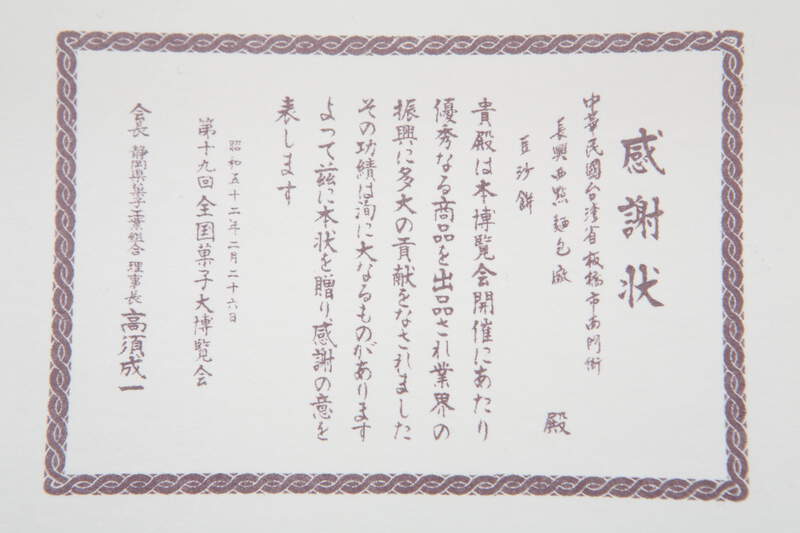 感謝状
中華民國台湾省板橋市南門街
長興西點麺包廠
豆沙餅
殿
貴殿は本博覧会開催にあたり
優秀なる商品を出品され業界の
振興に多大の貢献をなされました
その功績は洵に大なるものがあります
よって茲に本状を贈り感謝の意を
表します
昭和五十二年二月二十六日
第十九回全国菓子大博覧会
会長 静岡県菓子工業組合 理事長 高須成一